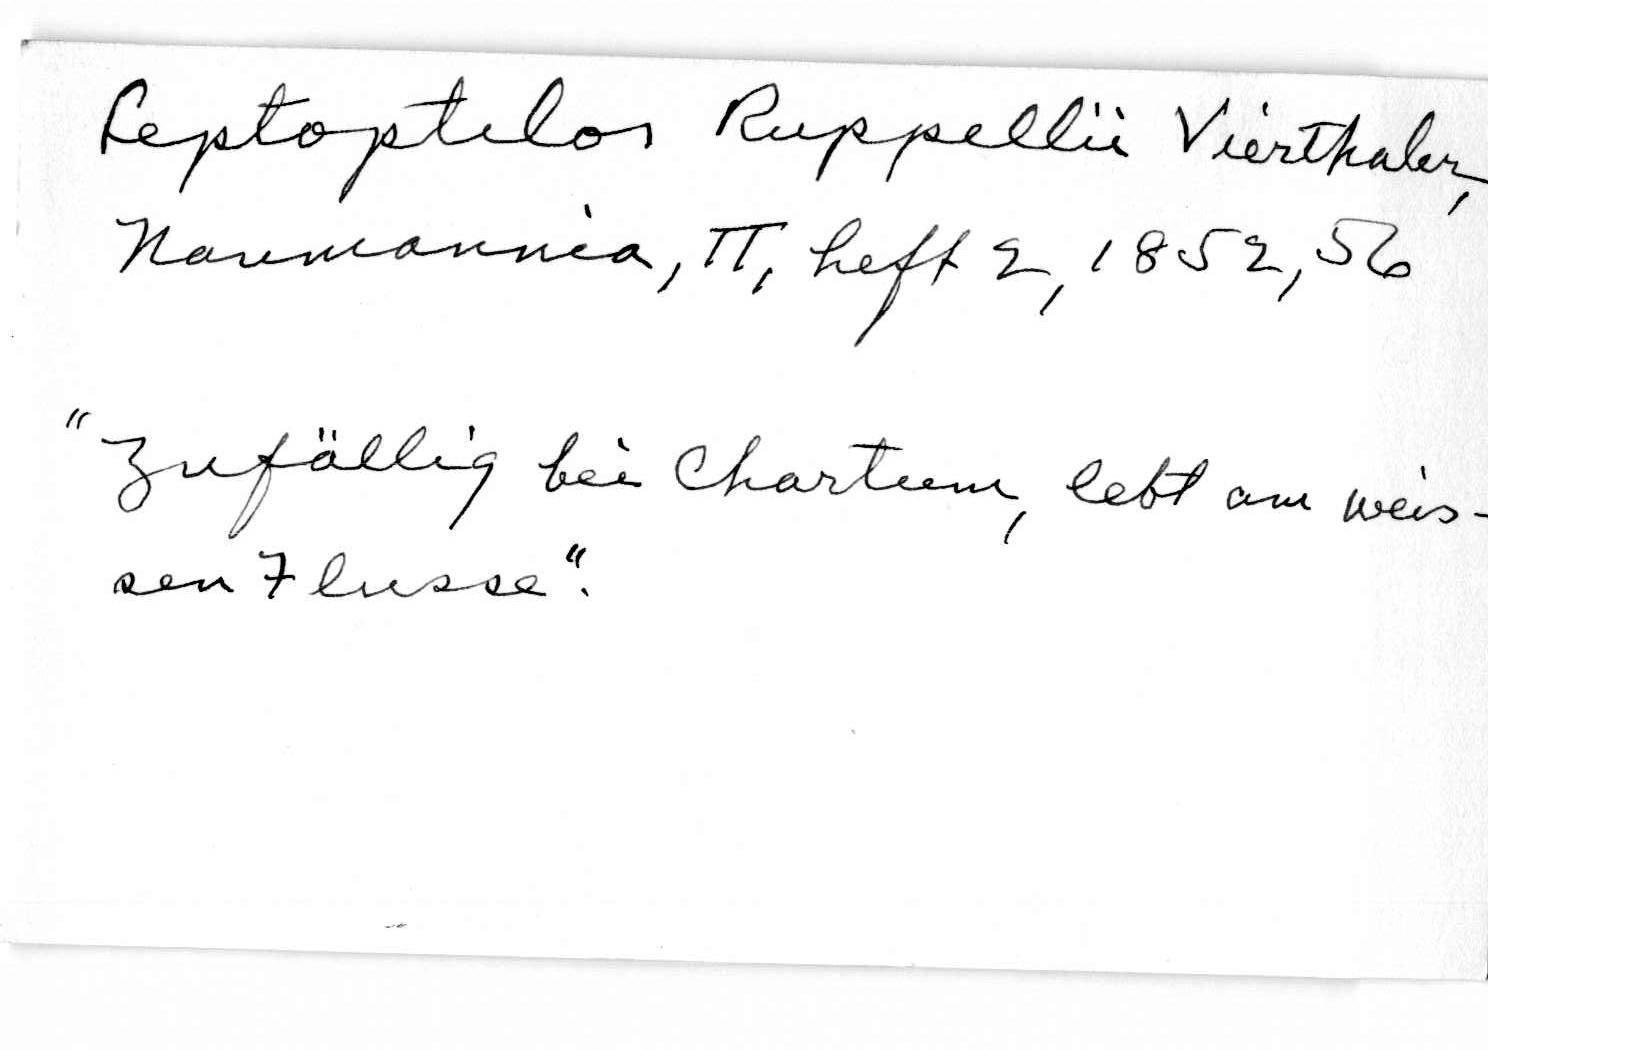 Leptoptilos Ruppellii Vierthaler,
Naumannia, II, heft 2, 1852, 56
"Zufällig bei Chartum, lebt am weis-
sen Flusse".